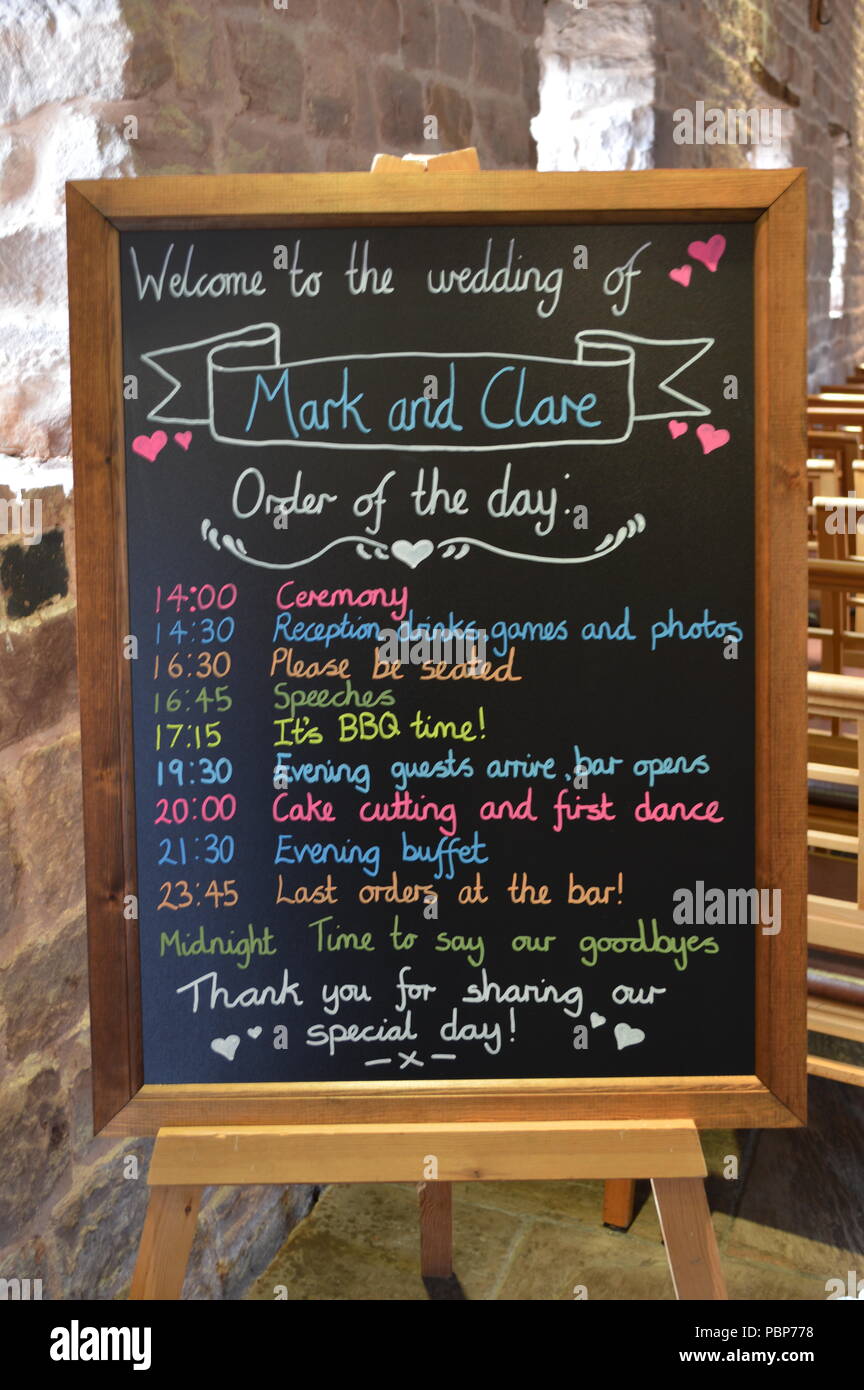 Welcome to the wedding of
Mark and Clare
Order of the day:
14:00 Ceremony
14:30 Reception drinks, games and photos
16:30 Please be seated
16:45 Speeches
17:15 It's BBQ time!
19:30 Evening guests arrive, bar opens
20:00 Cake cutting and first dance
21:30 Evening buffet
23:45 Last orders at the bar!
Midnight Time to say our goodbyes
Thank you for sharing our
special day!
– x –
alamy
Image ID: PBP778
www.alamy.com